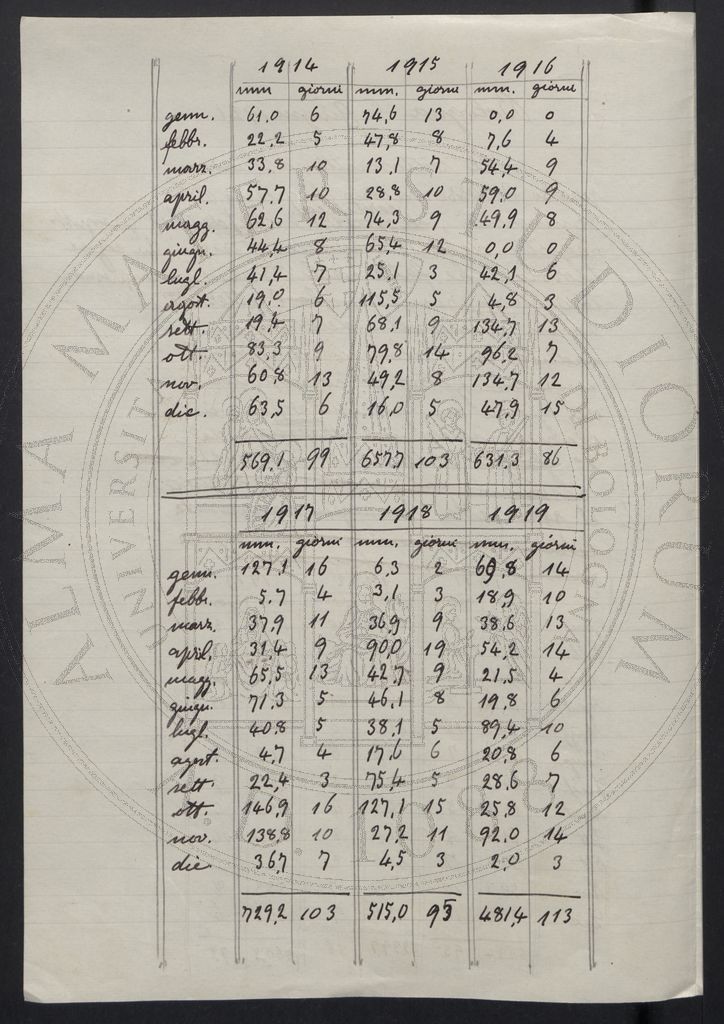 1914 1915 1916
mm giorni mm. giorni mm. giorni
genn. 61,0 6 74,6 13 0,0 0
febbr. 22,2 5 47,8 8 7,6 4
marz. 33,8 10 13,1 7 54,4 9
april. 57,7 10 28,8 10 59,0 9
magg. 62,6 12 74,3 9 49,9 8
giugn. 44,4 8 65,4 12 0,0 0
lugl. 41,4 7 25,1 3 42,1 6
agost. 19,0 6 115,5 5 4,8 3
sett. 19,4 7 68,1 9 134,7 13
ott. 83,3 9 79,8 14 96,2 7
nov. 60,8 13 49,2 8 134,7 12
dic. 63,5 6 16,0 5 47,9 15
569,1 99 657,7 103 631,3 86
1917 1918 1919
mm. giorni mm. giorni mm. giorni
genn. 127,1 16 6,3 2 69,8 14
febbr. 5,7 4 3,1 3 18,9 10
marz. 37,9 11 36,9 9 38,6 13
april. 31,4 9 90,0 19 54,2 14
magg. 65,5 13 42,7 9 21,5 4
giugn. 71,3 5 46,1 8 19,8 6
lugl. 40,8 5 38,1 5 89,4 10
agost. 4,7 4 17,6 6 20,8 6
sett. 22,4 3 75,4 5 28,6 7
ott. 146,9 16 127,1 15 25,8 12
nov. 138,8 10 27,2 11 92,0 14
dic 36,7 7 4,5 3 2,0 3
729,2 103 515,0 95 481,4 113
ALMA MATER STUDIORUM
UNIVERSITÀ DI BOLOGNA
1088